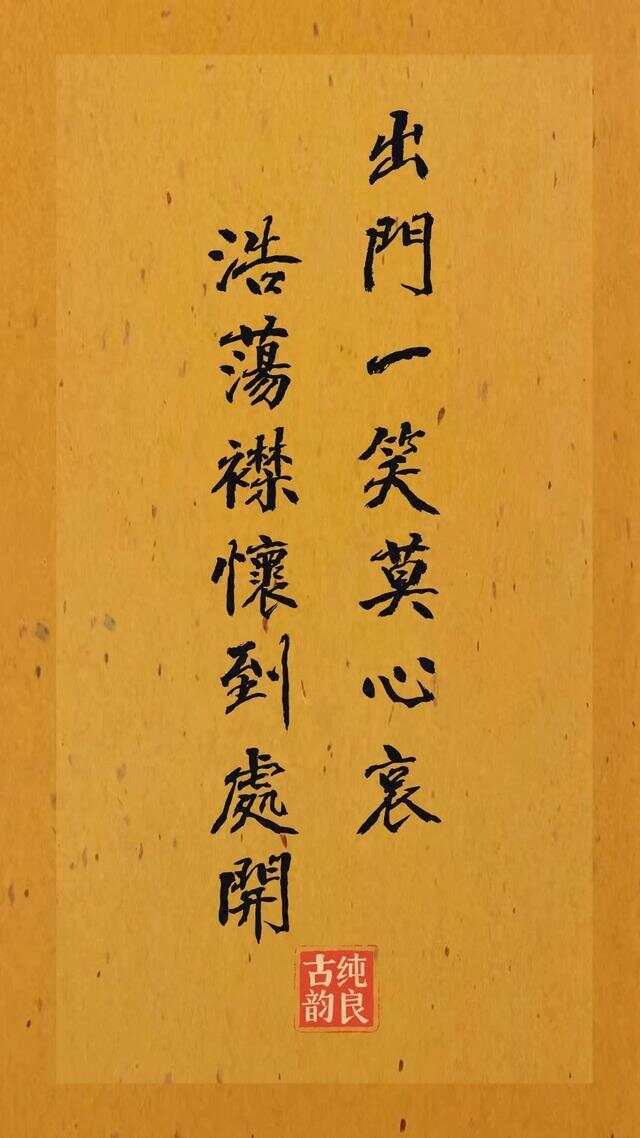 出門一笑莫心哀
浩蕩襟懷到處開
纯良
古韵